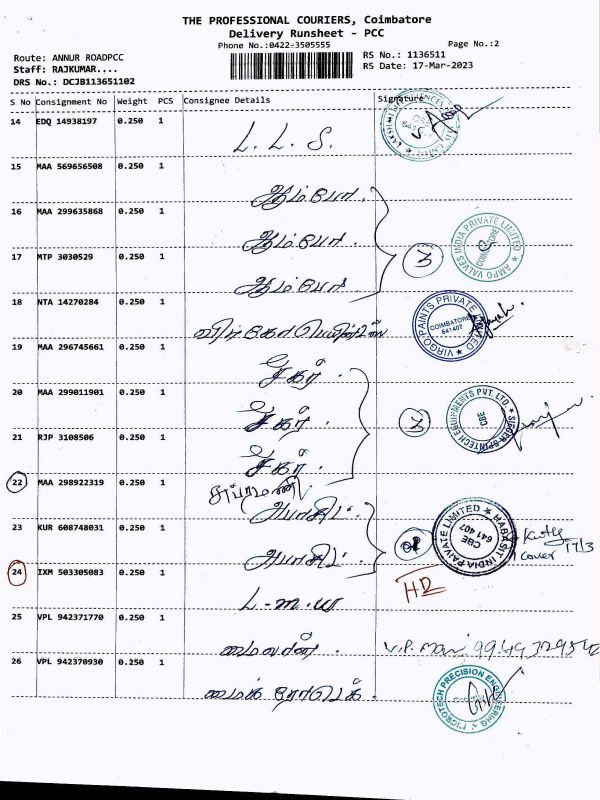 THE PROFESSIONAL COURIERS, Coimbatore
Delivery Runsheet - PCC
Phone No.:0422-3505555
Page No.:2
Route: ANNUR ROADPCC
RS No.: 1136511
Staff: RAJKUMAR....
RS Date: 17-Mar-2023
DRS No.: DCJB113651102
S No Consignment No Weight PCS Consignee Details Signature
14 EDQ 14938197 0.250 1
L. L. S.
15 MAA 569656508 0.250 1
ஆம்போ
16 MAA 299635868 0.250 1
ஆம்போ
17 MTP 3030529 0.250 1
ஆம்போ
3
AMPO VALVES INDIA PRIVATE LIMITED COIMBATORE
18 NTA 14270284 0.250 1
விர்கோ பெயிண்ட்ஸ்
VIRGO PAINTS PRIVATE LIMITED COIMBATORE 641407
19 MAA 296745661 0.250 1
சீகர்
20 MAA 299011901 0.250 1
சீகர்
3
SIEGER SPINTECH EQUIPMENTS PVT. LTD. CBE
21 RJP 3108506 0.250 1
சீகர்
22 MAA 298922319 0.250 1
சுப்ரமணி
HABASIT INDIA PRIVATE LIMITED CBE 641 407
23 KUR 608748031 0.250 1
cover 17/3
24 IXM 503305083 0.250 1
HD
L.M.W
25 VPL 942371770 0.250 1
V.P. Mani
26 VPL 942370930 0.250 1
MICROTECH PRECISION ENGINEERING